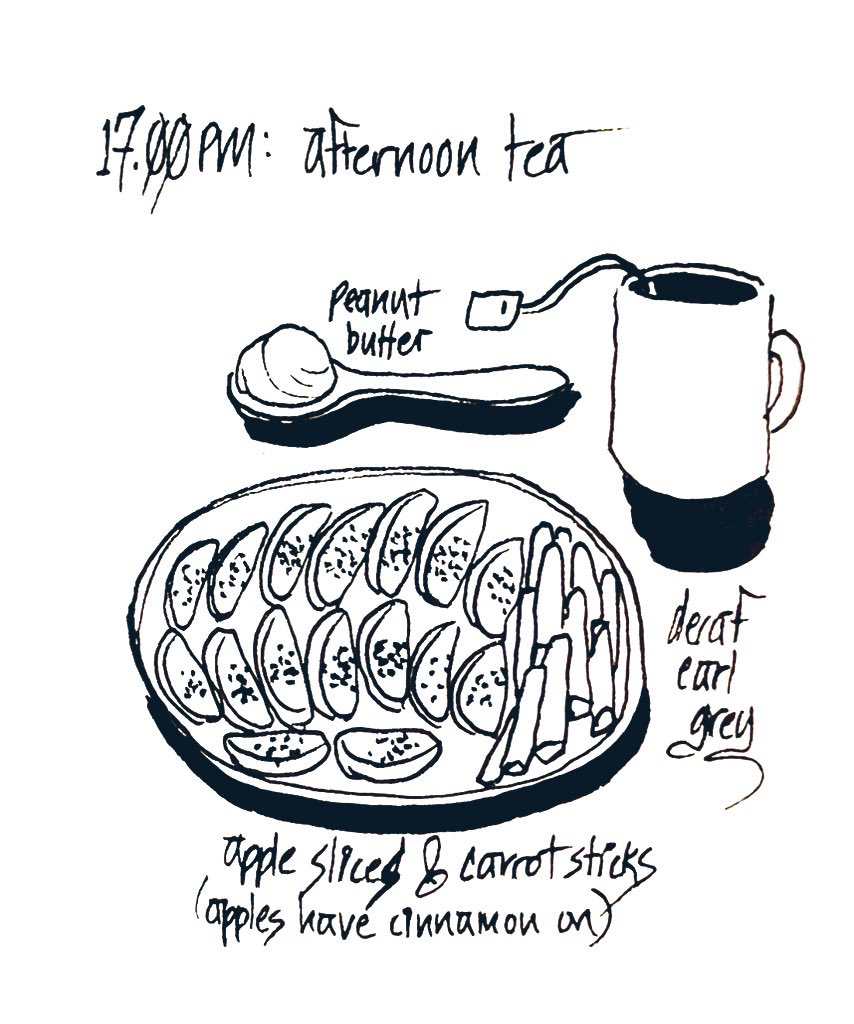 17.00PM: afternoon tea
peanut
butter
decaf
earl
grey
apple sliced & carrot sticks
(apples have cinnamon on)